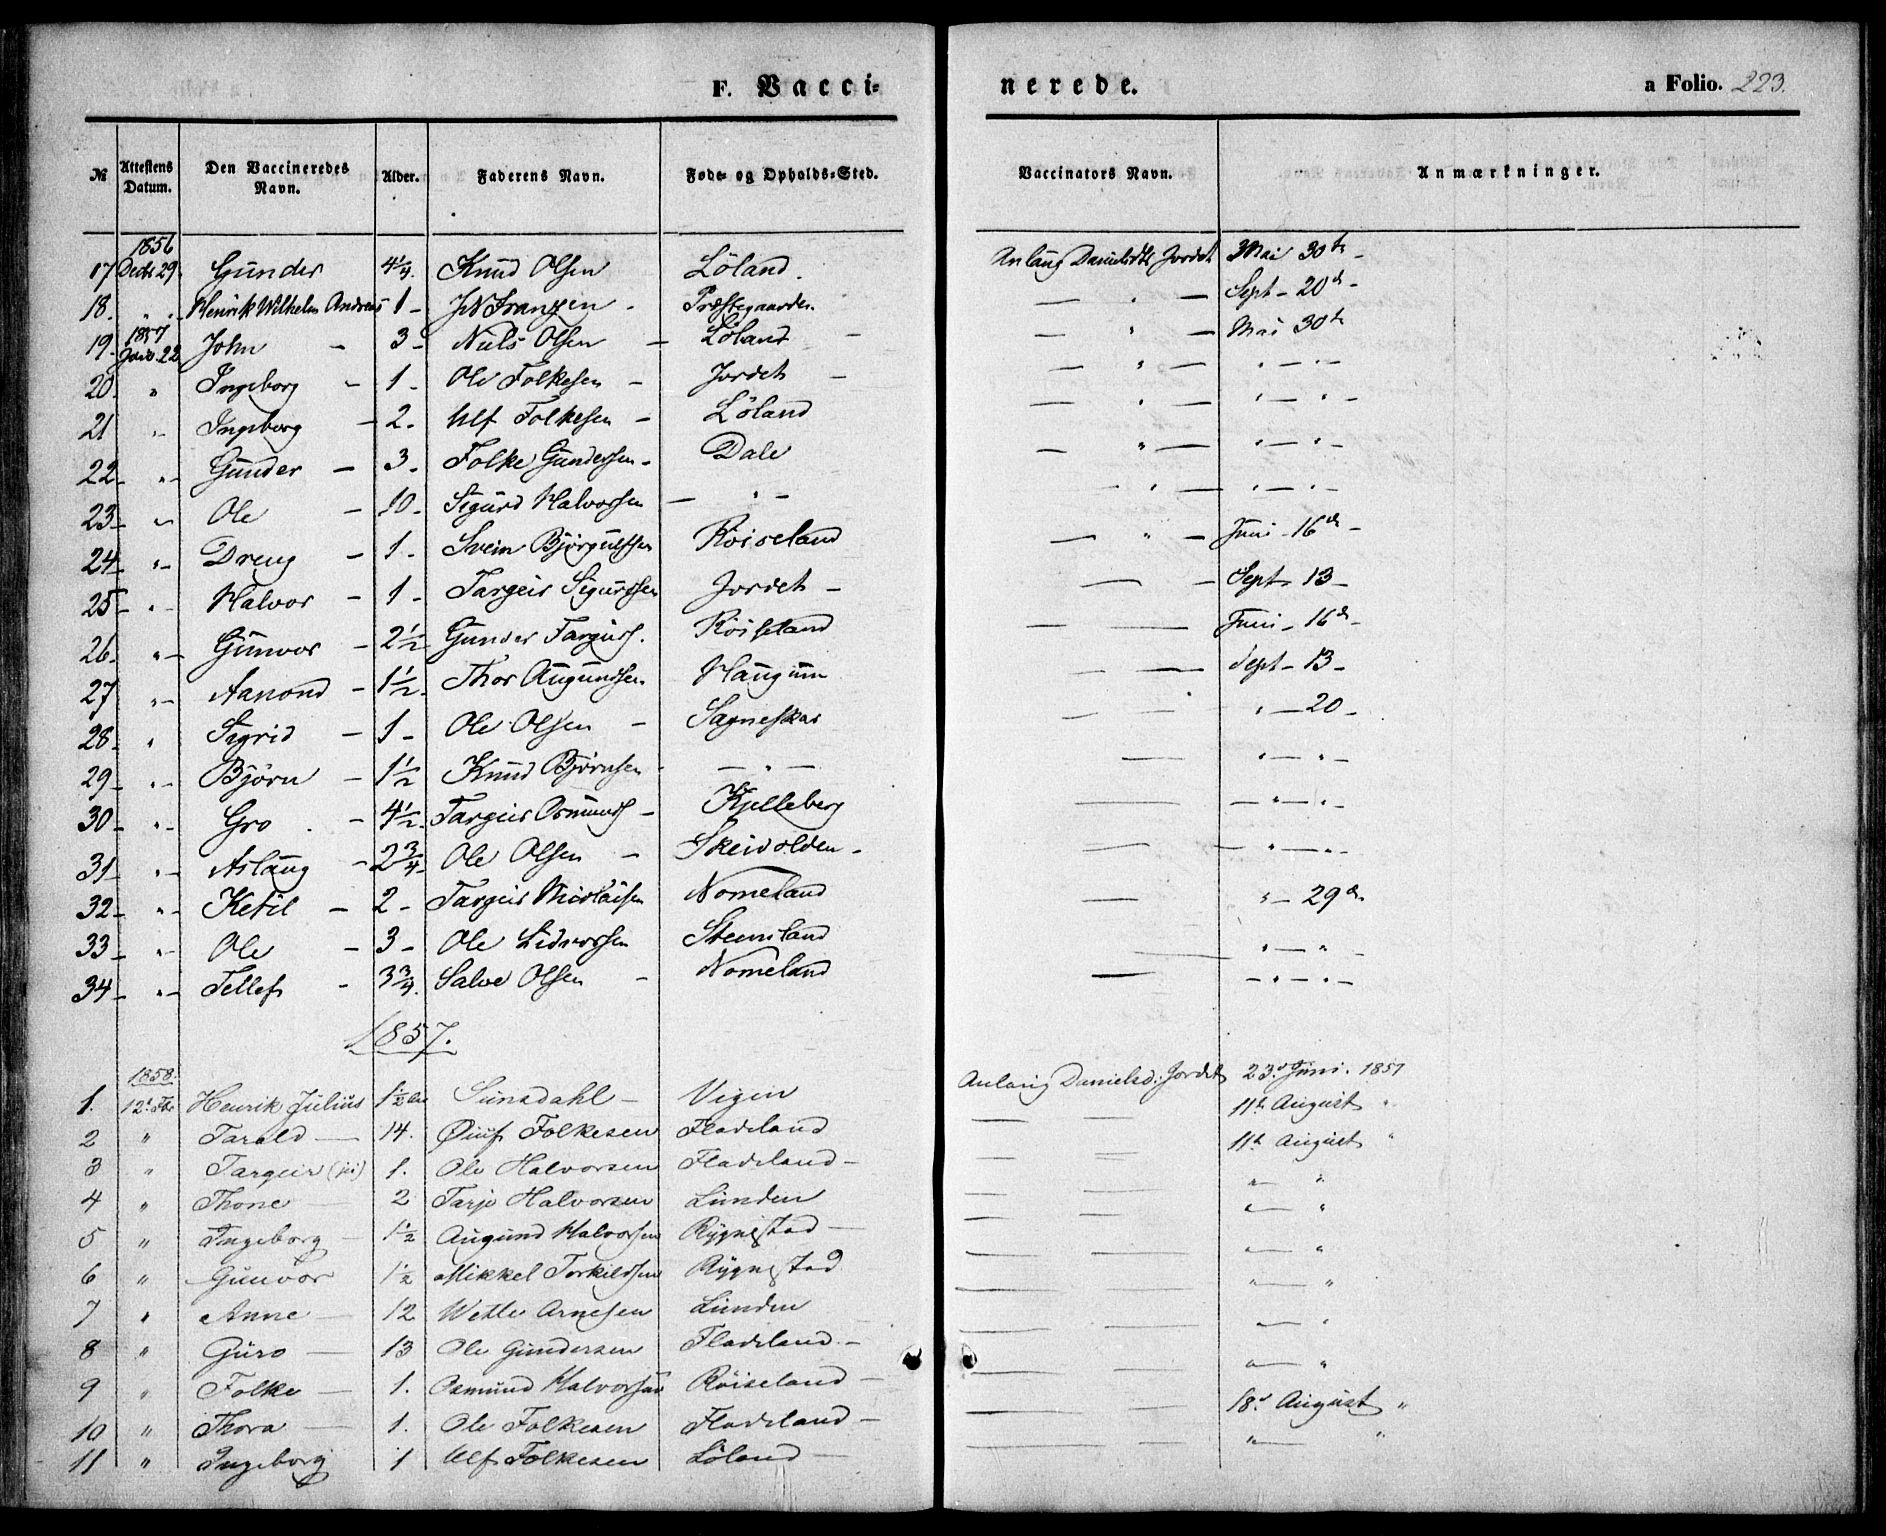 F. Vacci=
nerede.
a Folio. 223.
№ | Attestens Datum. | Den Vaccineredes Navn. | Alder. | Faderens Navn. | Føde- og Opholds-Sted. | Vaccinators Navn. | Anmærkninger.
1856
17 | Decbr 29. | Gunder | 4¼ | Knud Olsen | Löland. | Anlaug Danielsdtr Jordet | Mai 30te –
18. | " " | Henrik Wilhelm Andreas | 1 – | Franzen – | Præstegaarden. | — " — | Sept – 20de –
1857
19. | Janr. 22 | John – | 3 – | Nils Olsen – | Löland – | — " — | Mai 30te
20. | " | Ingeborg – | 1 – | Ole Folkesen – | Jordet – | — " — | " — " —
21 | " | Ingeborg – | 2. | Ulf Folkesen – | Löland | — " — | " — " —
22 – | " – | Gunder – | 3 – | Folke Gundersen – | Dale | — " — | " — " —
23 – | " | Ole – | 10 – | Sigurd Halvorsen | — " — | — " — | " — " —
24 – | " – | Dreng – | 1 – | Svein Björgulfsen | Röiseland | — " — | Juni – 16de –
25 – | " – | Halvor – | 1 – | Targeir Sigurdsen | Jordet – | — — | Sept – 13 –
26 – | " – | Gunvor – | 2½ | Gunder Targeirs. | Röiseland | — — | Juni – 16de –
27 | " – | Aanond – | 1½ – | Thor Augundsen | Haugum | — — | Sept – 13 –
28 – | " | Sigrid – | 1 – | Ole Olsen – | Sagneskar | — — | " — 20 –
29 – | " – | Björn – | 1½ | Knud Björnsen | — " — | — | " — " –
30 – | " – | Gro . – | 4½ – | Targeir Osmunds – | Kjelleberg | — — | — " — " –
31 – | " – | Aslaug – | 2¾ – | Ole Olsen – | Skeivolden – | — — | – " — " –
32 – | " – | Ketil – | 2 – | Targeir Nicolaisen | Nomeland | — | " – 29de
33 – | " – | Ole – | 3 – | Ole Lidvorsen | Steensland | — | " — "
34 – | " – | Tellef – | 3¾ – | Salve Olsen – | Nomeland | — — | – " – " –
1857.
1858.
1. | 12te Fbr | Henrik Julius | 1½ | Sunsdahl – | Vigen | Anlaug Danielsd: Jordet | 23d Juni. 1857
2 | " | Tarald — | 14. | Folkesen | Fladeland | — — | 11te August "
3 | " | Targeir | 1. | Ole Halvorsen | Fladeland – | — — | 11te August "
4 | " | Thone — | 2 | Tarjo Halvorsen | Lunden | — — | " — "
5 | " | Ingeborg – | 1½ | Augund Halvorsen | Rygnestad — | — — | " — "
6 | " | Gunvor | 1½ | Mikkel Torkildsen | Rygnestad | — — | " — "
7 | " | Anne — | 12 | Wetle Arnesen | Lunden | — — | " — "
8 | " | Guro — | 13 | Ole Gundersen | Fladeland – | — — | " — "
9 | " | Folke — | 1. | Osmund Halvorsen | Röiseland – | — — | " — "
10 | " | Thora — | 1. | Ole Folkesen | Fladeland – | — — | 18d August "
11 | " | Ingeborg | 1 | Ulf Folkesen | Löland — | — — | " — "